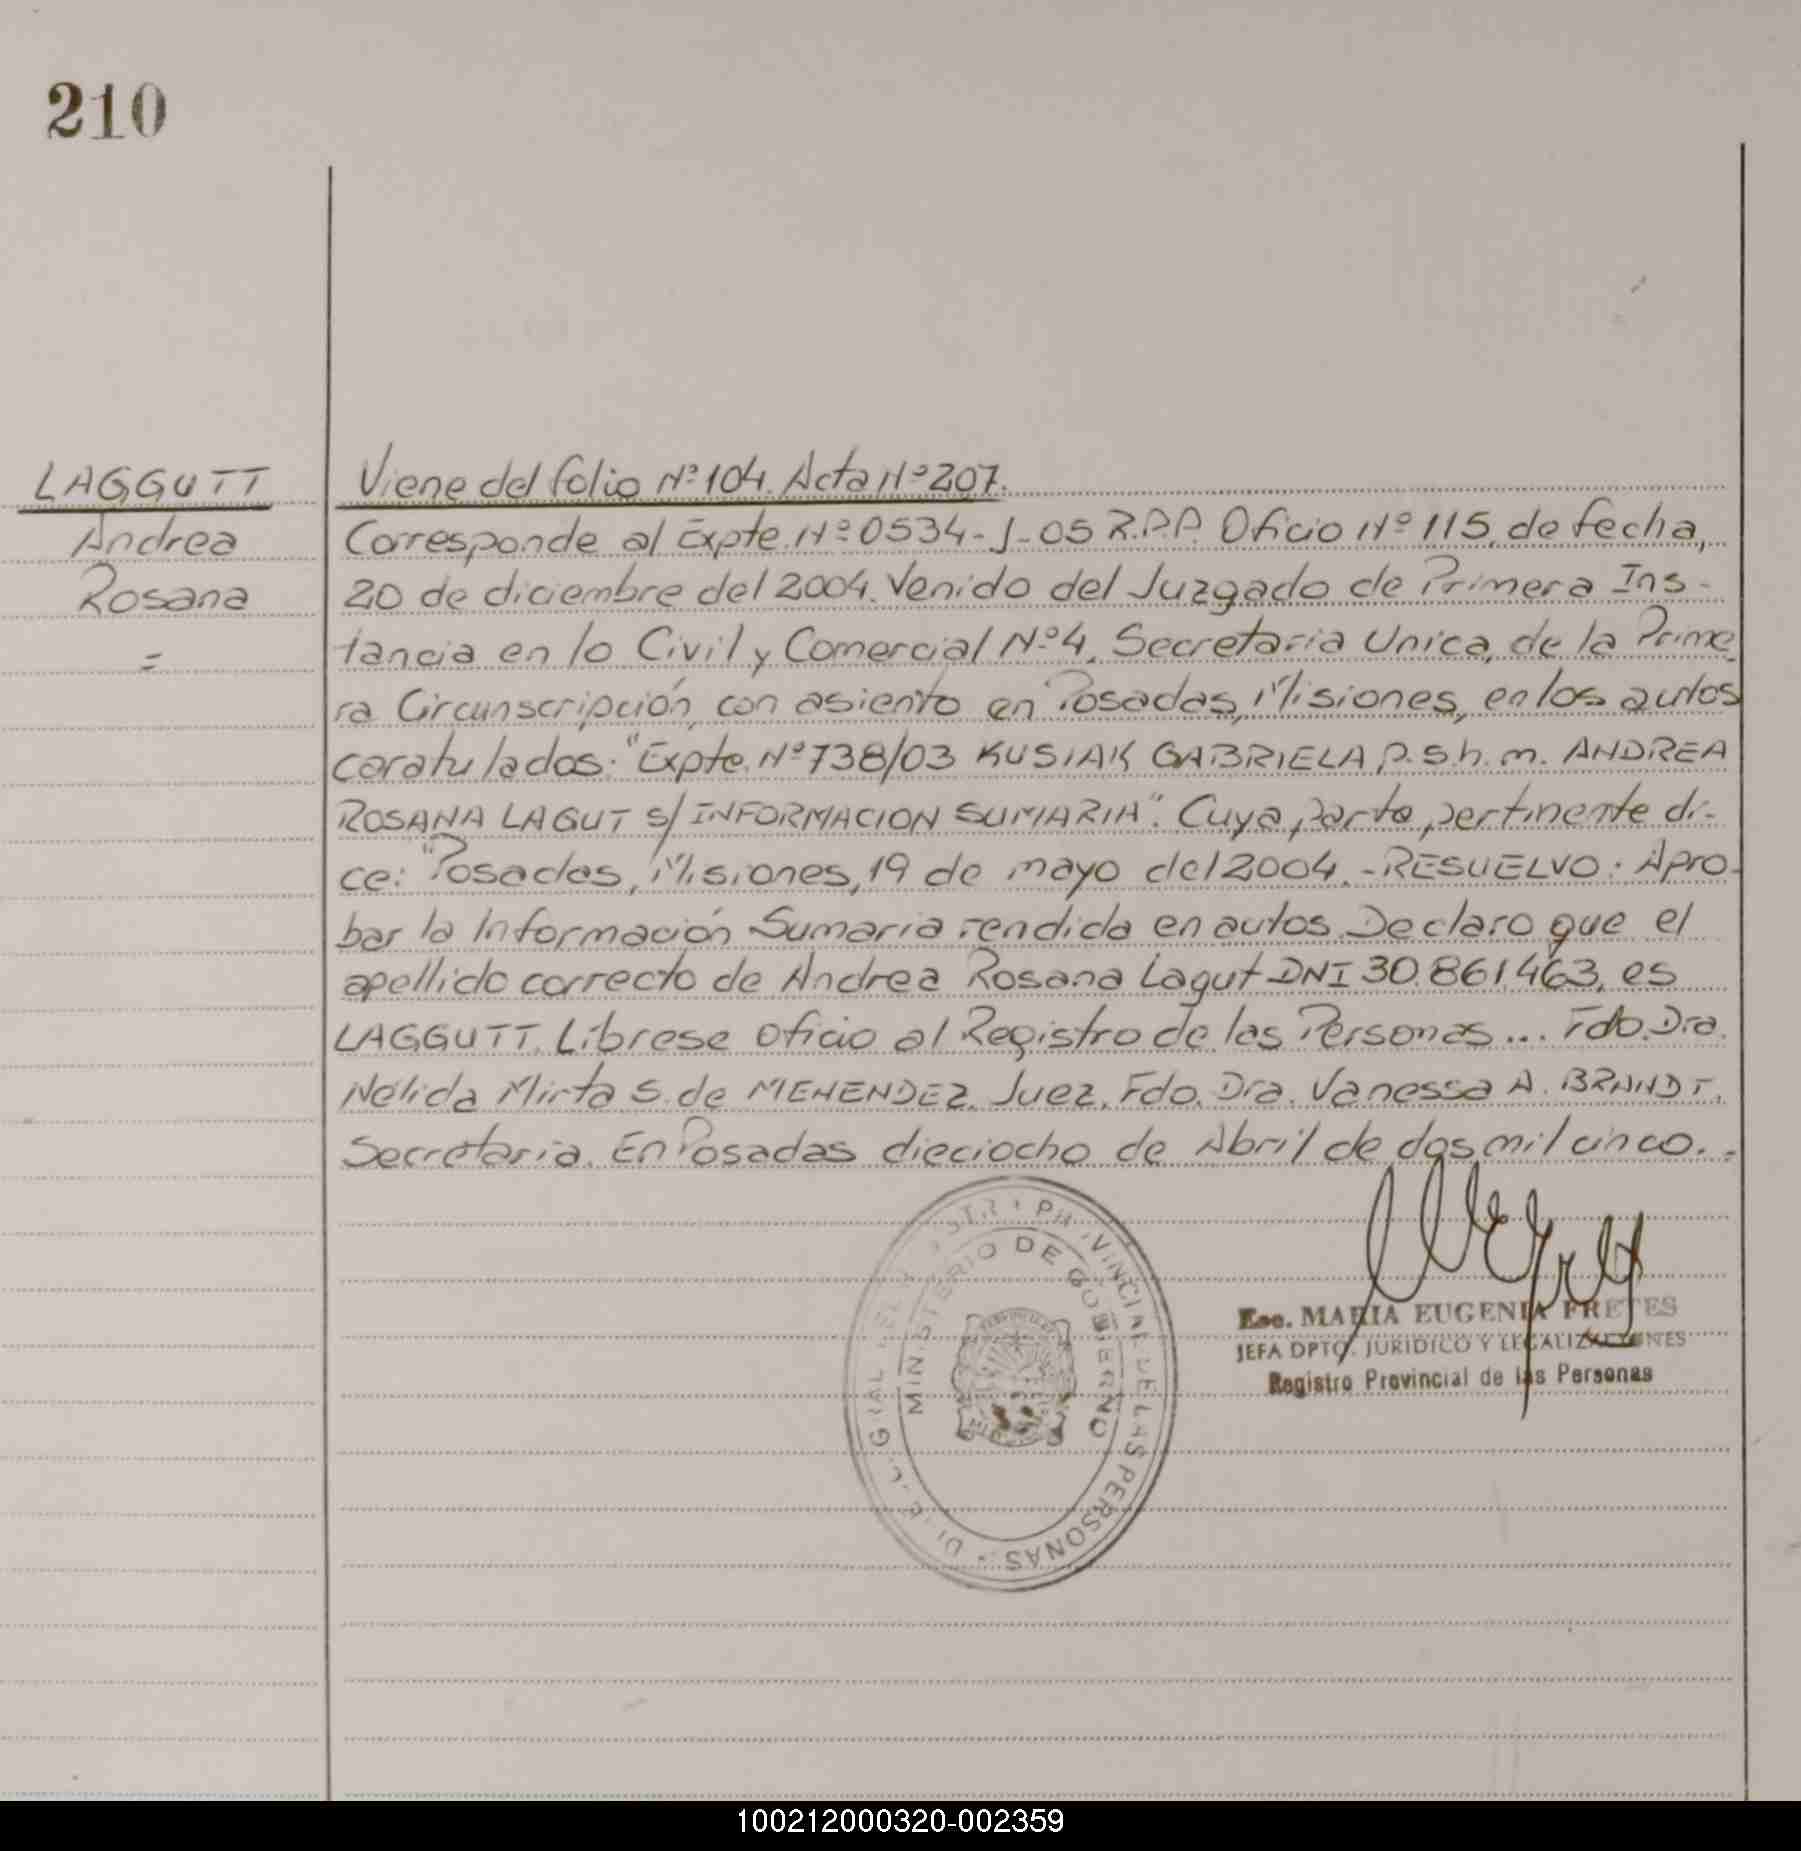 210
LAGGUTT
Andrea
Rosana
=
Viene del folio Nº 104. Acta Nº 207.
Corresponde al Expte. Nº 0534-J-05 R.P.P. Oficio Nº 115, de fecha,
20 de diciembre del 2004. Venido del Juzgado de Primera Ins-
tancia en lo Civil y Comercial Nº 4, Secretaria Unica, de la Prime_
ra Circunscripción, con asiento en Posadas, Misiones, en los autos
caratulados: "Expte. Nº 738/03 KUSIAK GABRIELA p.s.h.m. ANDREA
ROSANA LAGUT S/ INFORMACION SUMARIA". Cuya parte pertinente di-
ce: "Posadas, Misiones, 19 de mayo del 2004.-RESUELVO: Apro-
bar la Información Sumaria rendida en autos. Declaro que el
apellido correcto de Andrea Rosana Lagut DNI 30.861.463, es
LAGGUTT. Líbrese oficio al Registro de las Personas... Fdo. Dra.
Nélida Mirta S. de MENENDEZ. Juez. Fdo. Dra. Vanessa A. BRANDT.
Secretaria. En Posadas dieciocho de Abril de dos mil cinco.-
PROVINCIAL DE LAS PERSONAS
MINISTERIO DE GOBIERNO
Esc. MARIA EUGENIA FRETES
JEFA DPTO. JURIDICO Y LEGALIZACIONES
Registro Provincial de las Personas
100212000320-002359